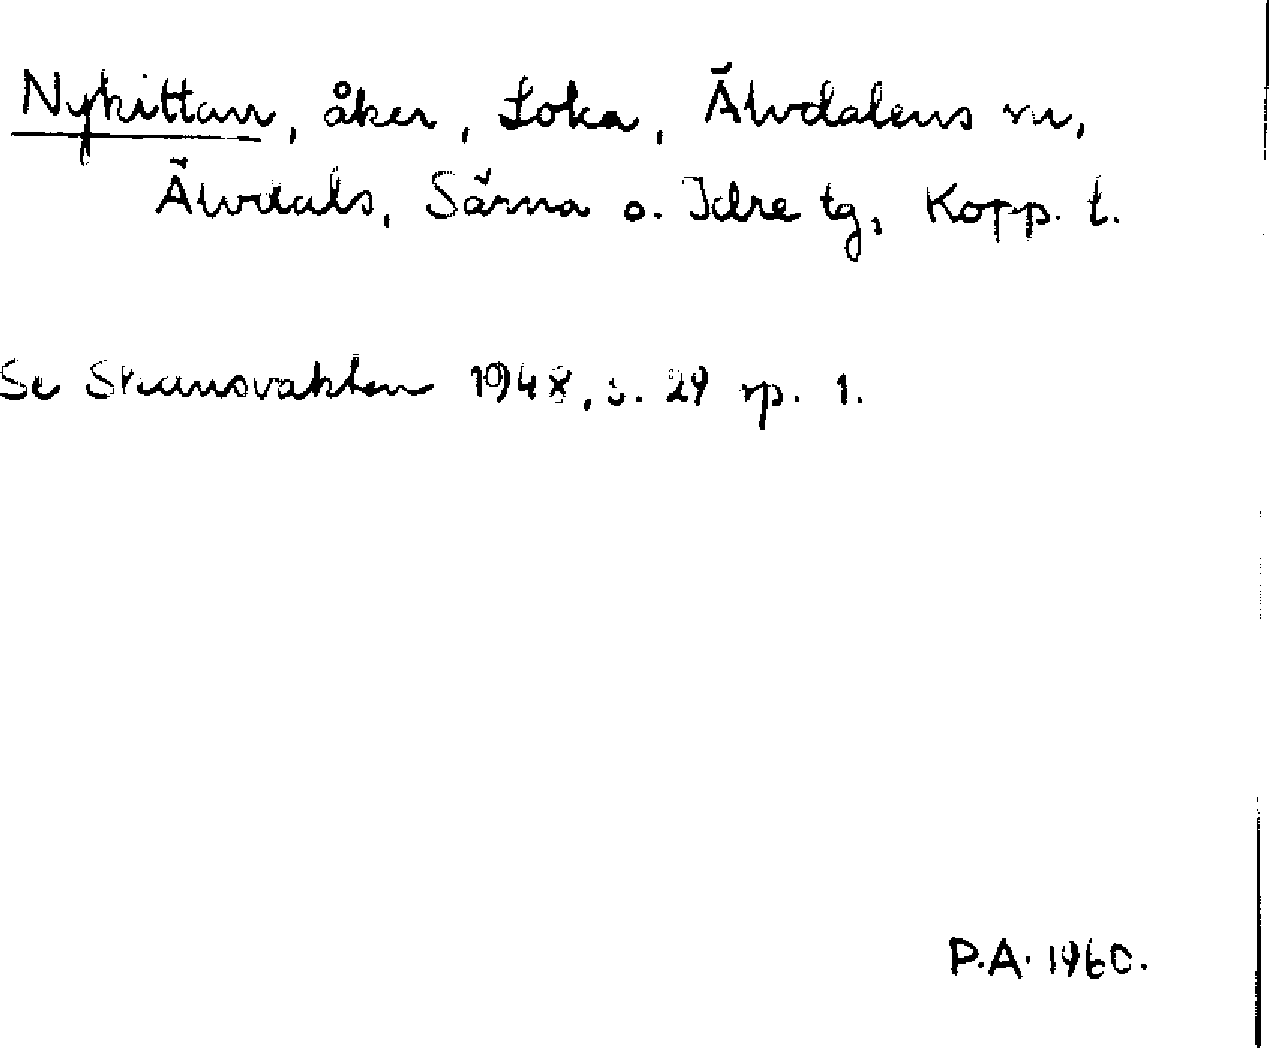 Nykittan, åker, Loka, Älvdalens sn,
Älvdals, Särna o. Idre tg, Kopp. l.
Se Skansvakten 1948, s. 29 sp. 1.
P.A. 1960.